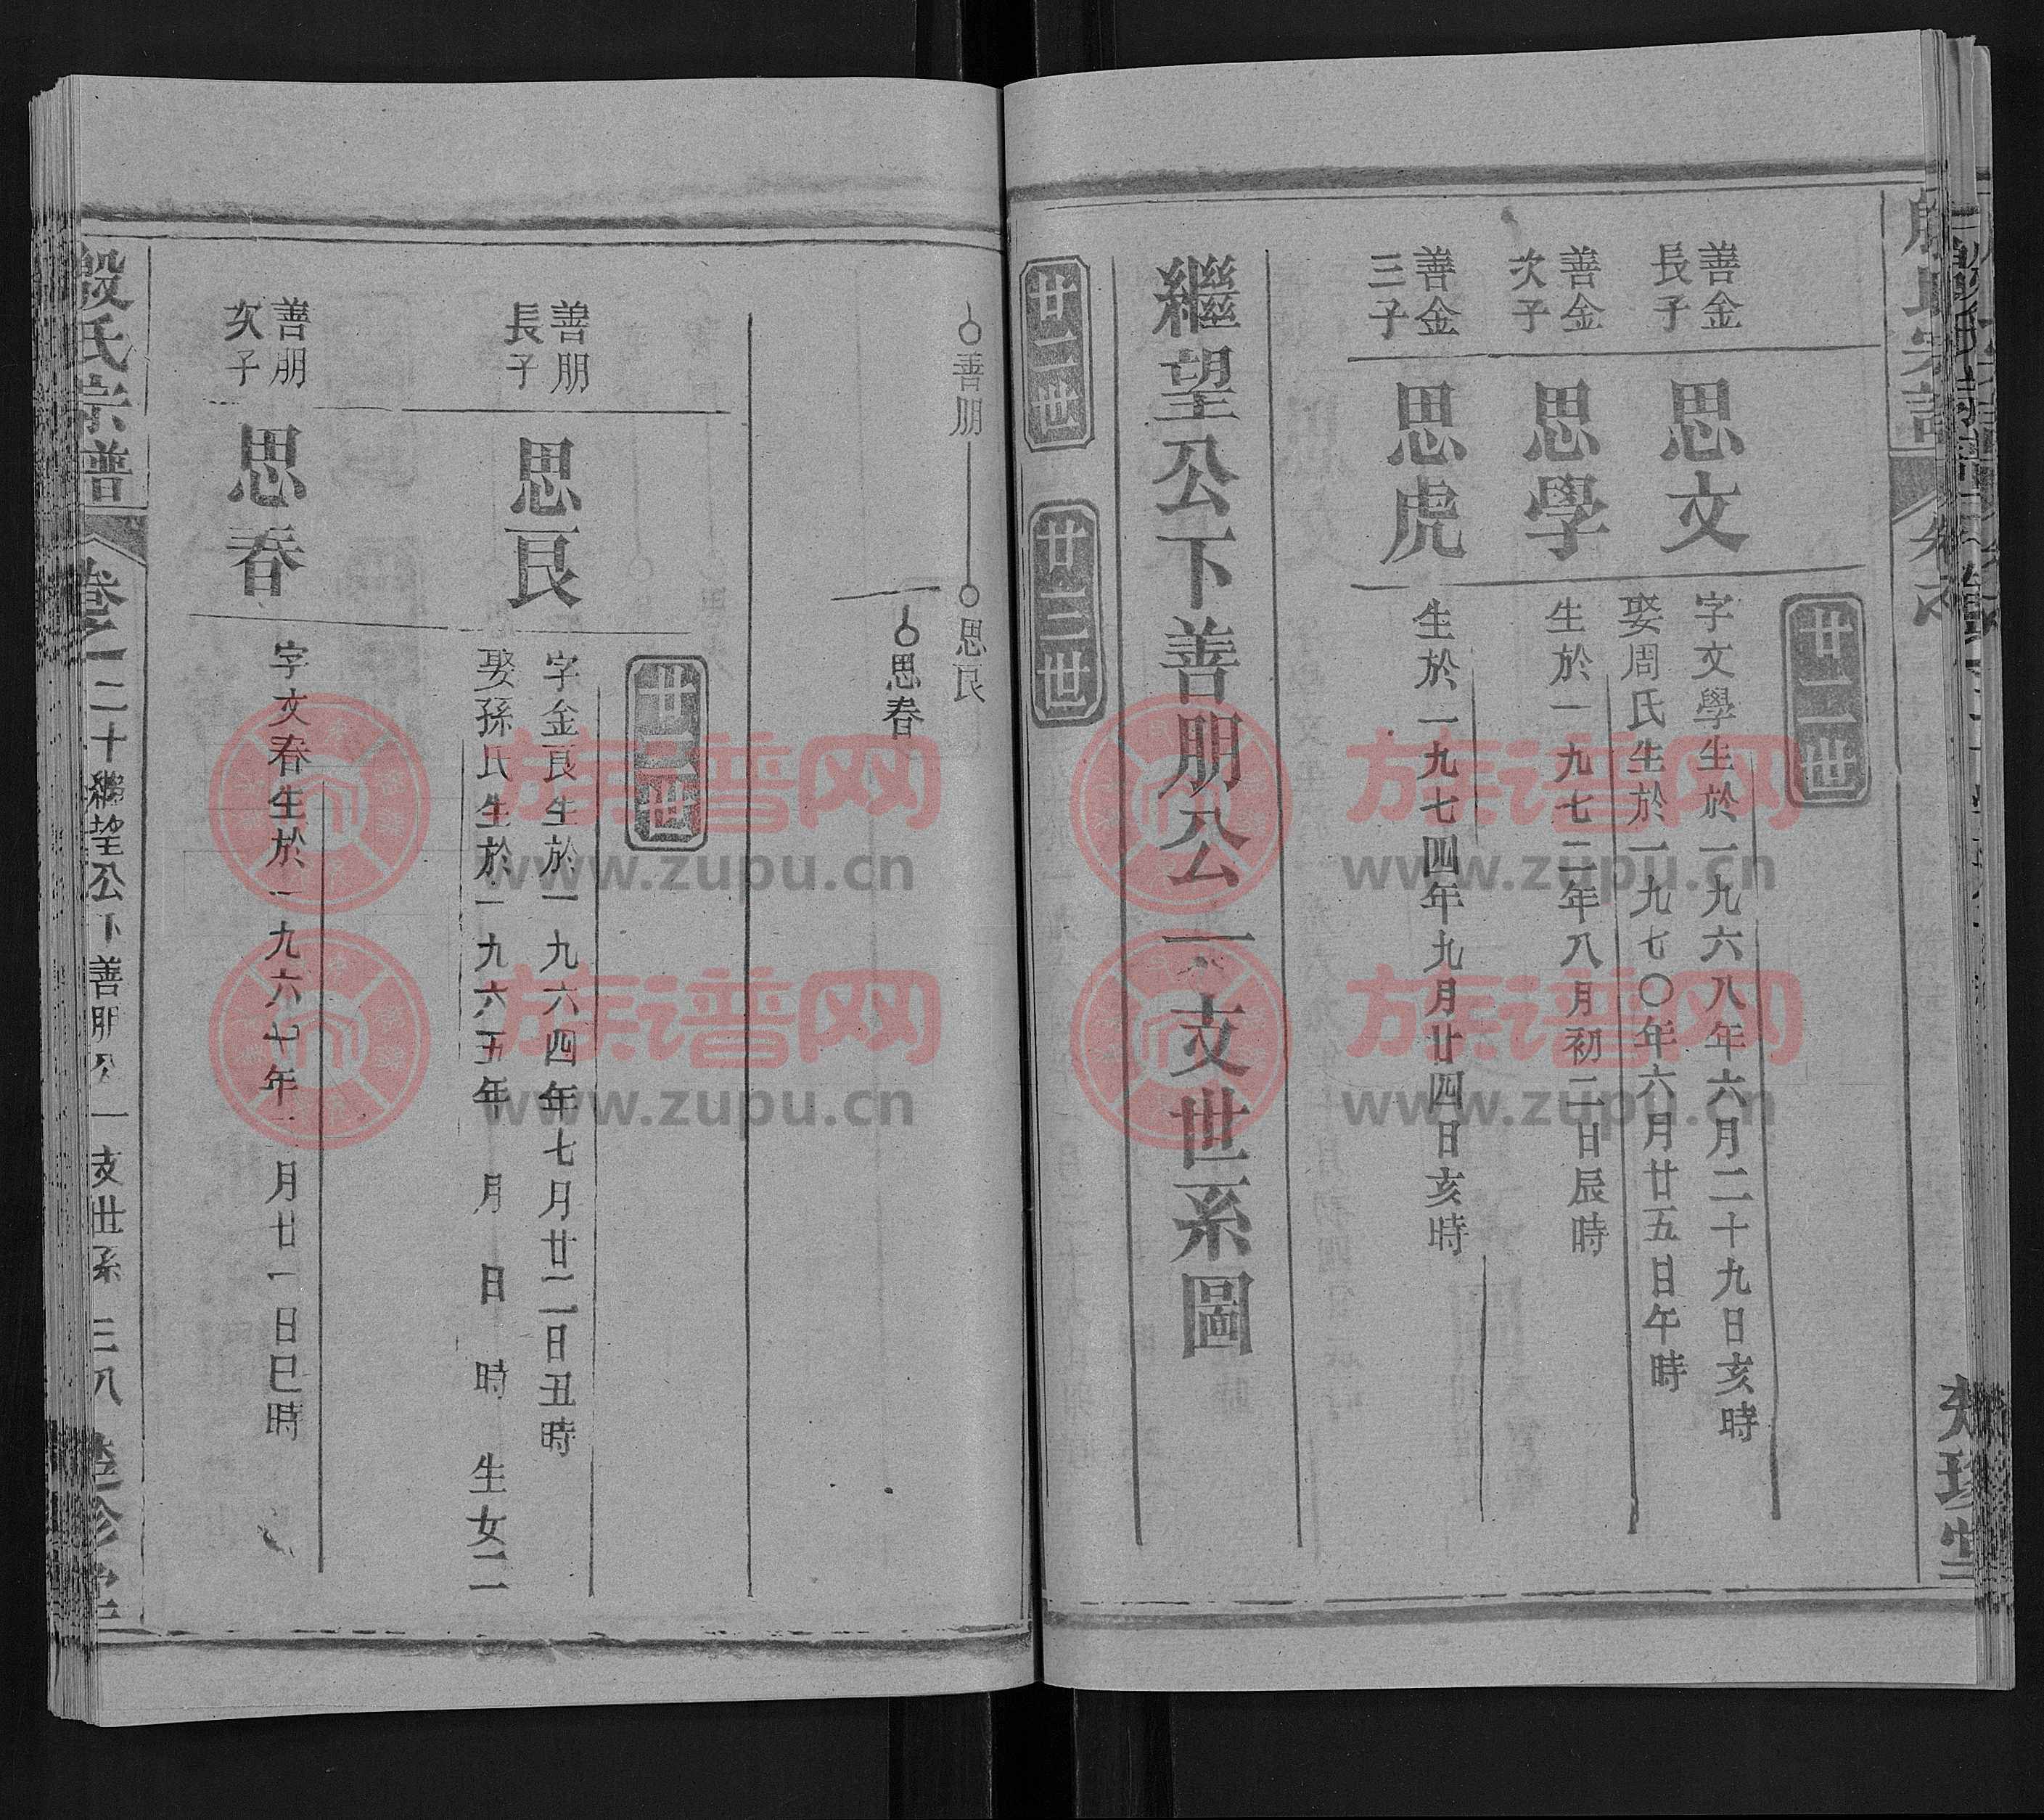 廿二世
善金
長子
思文
字文學生於一九六八年六月二十九日亥時
娶周氏生於一九七〇年六月廿五日午時
善金
次子
思學
生於一九七二年八月初二日辰時
善金
三子
思虎
生於一九七四年九月廿四日亥時
繼望公下善朋公一支世系圖
廿一世
廿二世
善朋
思良
思春
廿二世
善朋
長子
思良
字金良生於一九六四年七月廿二日丑時
娶孫氏生於一九六五年 月 日 時 生女二
善朋
次子
思春
字文春生於一九六七年 月廿一日巳時
殷氏宗譜
卷之二十繼望公下善朋公一支世系 三八
族谱网
www.zupu.cn
族谱网
www.zupu.cn
族谱网
www.zupu.cn
族谱网
www.zupu.cn